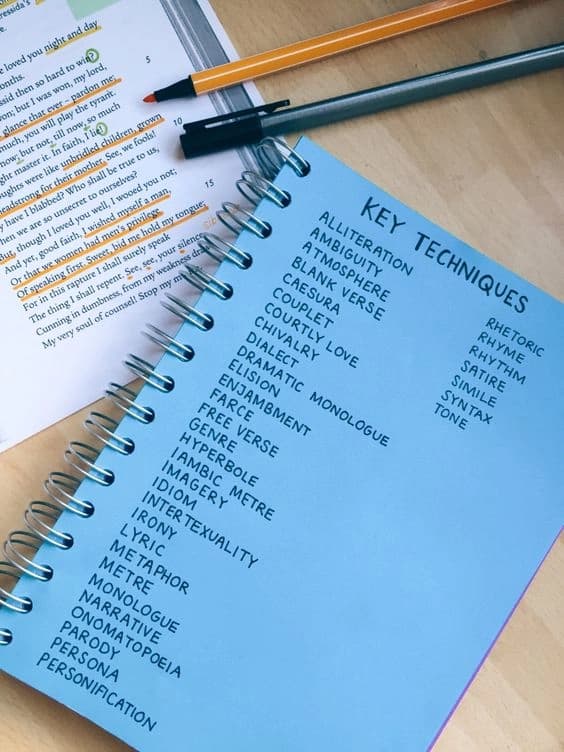 loved you night and day
so hard to win? 5
but I was won, my lord,
glance that ever – pardon me;
much, you will play the tyrant.
now; but not, till now, so much
master it. In faith, I 10
were like unbridled children, grown
for their mother. See, we fools!
have I blabbed? Who shall be true to us,
we are so unsecret to ourselves?
But, though I loved you well, I wooed you not; 15
And yet, good faith, I wished myself a man,
Or that we women had men's privilege
Of speaking first. Sweet, bid me hold my tongue,
For in this rapture I shall surely speak
The thing I shall repent. See, see, your
Cunning in dumbness, from my weakness
My very soul of counsel! Stop my
KEY TECHNIQUES
ALLITERATION
AMBIGUITY
ATMOSPHERE
BLANK VERSE
CAESURA
COUPLET
COURTLY LOVE
CHIVALRY
DIALECT
DRAMATIC MONOLOGUE
ELISION
ENJAMBMENT
FARCE
FREE VERSE
GENRE
HYPERBOLE
IAMBIC METRE
IMAGERY
IDIOM
INTERTEXUALITY
IRONY
LYRIC
METAPHOR
METRE
MONOLOGUE
NARRATIVE
ONOMATOPOEIA
PARODY
PERSONA
PERSONIFICATION
RHETORIC
RHYME
RHYTHM
SATIRE
SIMILE
SYNTAX
TONE